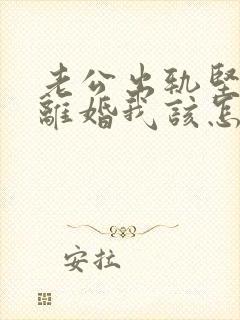 老公出轨坚
離婚我该怎
安拉